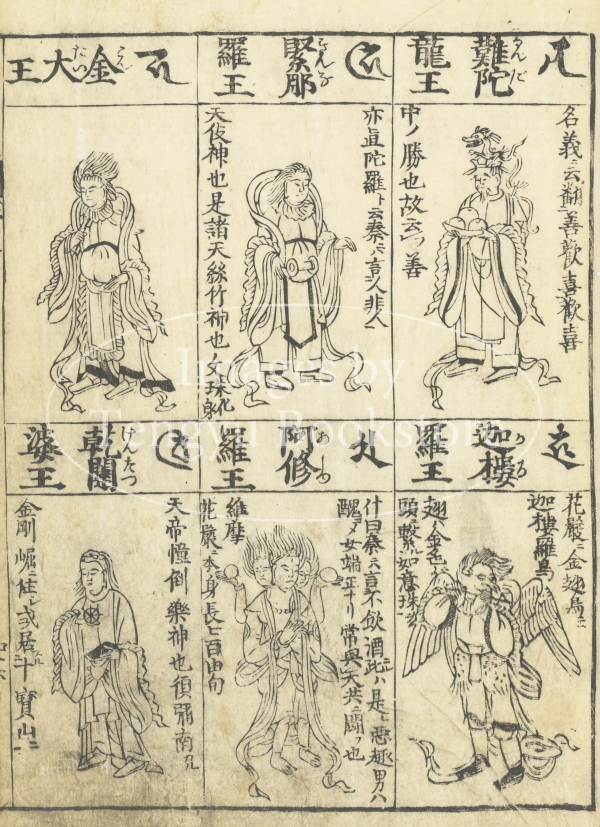 難陀
龍王
なんだ
名義ニ云翻善歓喜歓喜
中ノ勝也故云善
緊那
羅王
きんな
亦眞陀羅ト云秦ニ言人非人
天伎神也是諸天絲竹神也
金大王
こん
だい
迦樓
羅王
かる
花嚴ニ金翅鳥
迦樓羅鳥
翅ハ金色
頭ニ繋如意珠
阿修
羅王
あしゆ
什曰秦ニ言不飲酒此ハ是
悪趣男ハ
醜メ女端正ナリ常與天共ニ闘也
維摩
花嚴ニ本身長七百由旬
乾闥
婆王
けんだつ
天帝幢倒樂神也須弥南
金剛崛ニ住シ或居十寳山ニ
Images by
Tengyu Bookstore